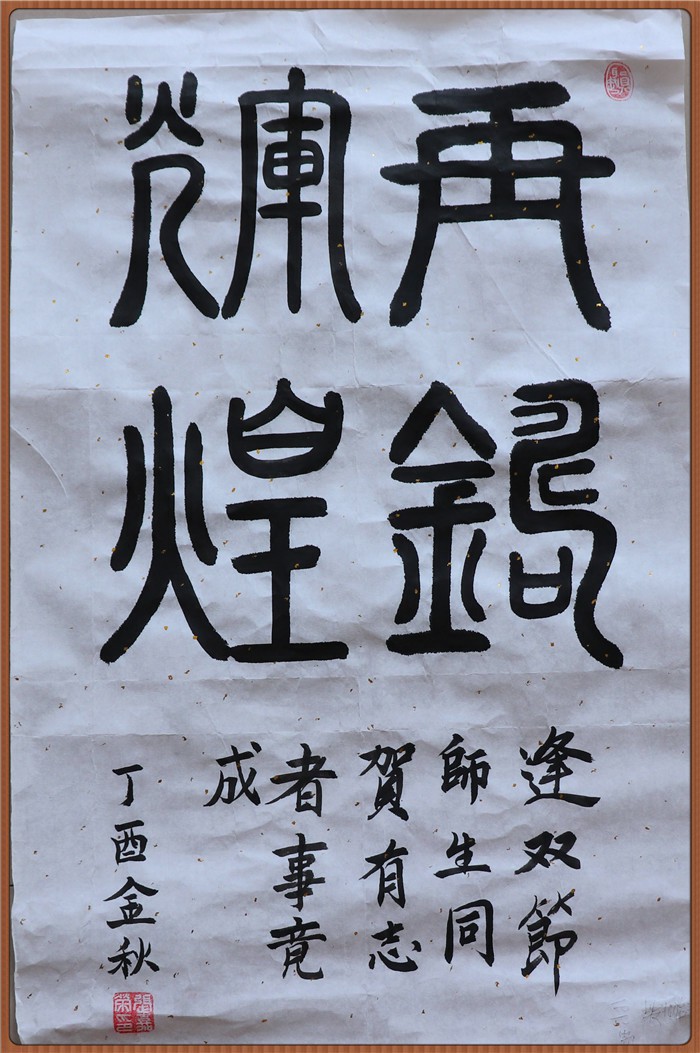 再鑄
輝煌
逢双節
師生同
賀有志
者事竟
成
丁酉金秋